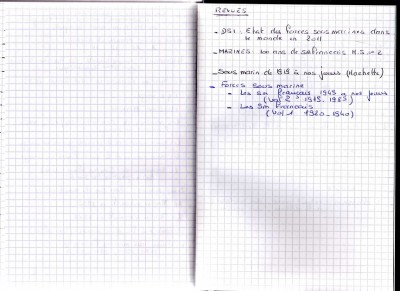 REVUES
- DSI : Etat des forces sous marines dans
le monde en 2011
- MARINES : 100 ans de sm francais H.S n°2
- Sous marin de 1919 à nos jours (Hachette)
- Forces sous marine
- Les Sm Français 1945 a nos jours
(Vol 2 : 1945-1983)
- Les Sm Francais
(Vol 1 1920-1940)